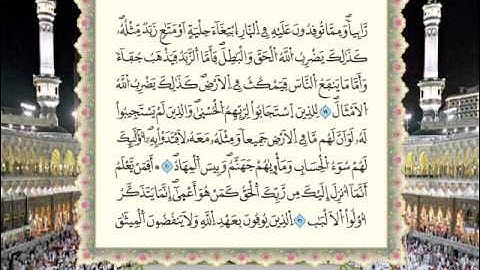 رَّابِياًۖ وَمِمَّا تُوقِدُونَ عَلَيْهِ فِے اِ۬لنّ۪ارِ اِ۪بْتِغَآءَ حِلْيَةٍ اَوْ مَتَٰعٖ زَبَدٞ مِّثْلُهُۥۖ
كَذَٰلِكَ يَضْرِبُ اُ۬للَّهُ اُ۬لْحَقَّ وَالْبَٰطِلَۖ فَأَمَّا اَ۬لزَّبَدُ فَيَذْهَبُ جُفَآءٗ
وَأَمَّا مَا يَنفَعُ اُ۬لنَّاسَ فَيَمْكُثُ فِے اِ۬لَارْضِۖ كَذَٰلِكَ يَضْرِبُ اُ۬للَّهُ
اُ۬لَامْثَالَۖ ١٩ لِلذِينَ اَ۪سْتَجَابُواْ لِرَبِّهِمُ اُ۬لْحُسْنَيٰۖ وَالذِينَ لَمْ يَسْتَجِيبُواْ
لَهُۥ لَوَ اَنَّ لَهُم مَّا فِے اِ۬لَارْضِ جَمِيعاٗ وَمِثْلَهُۥ مَعَهُۥ لَافْتَدَوْاْ بِهِۦٓۖ أُوْلَٰٓئِكَ
لَهُمْ سُوٓءُ اُ۬لْحِسَابِ وَمَأْوٜيٰهُمْ جَهَنَّمُۖ وَبِيسَ اَ۬لْمِهَادُۖ ٢٠ أَفَمَنْ يَّعْلَمُ
أَنَّمَآ أُنزِلَ إِلَيْكَ مِن رَّبِّكَ اَ۬لْحَقُّ كَمَنْ هُوَ أَعْمَيٰٓۖ إِنَّمَا يَتَذَكَّرُ
أُوْلُواْ اُ۬لَالْبَٰبِ ٢١ اِ۬لذِينَ يُوفُونَ بِعَهْدِ اِ۬للَّهِ وَلَا يَنقُضُونَ اَ۬لْمِيثَٰقَ